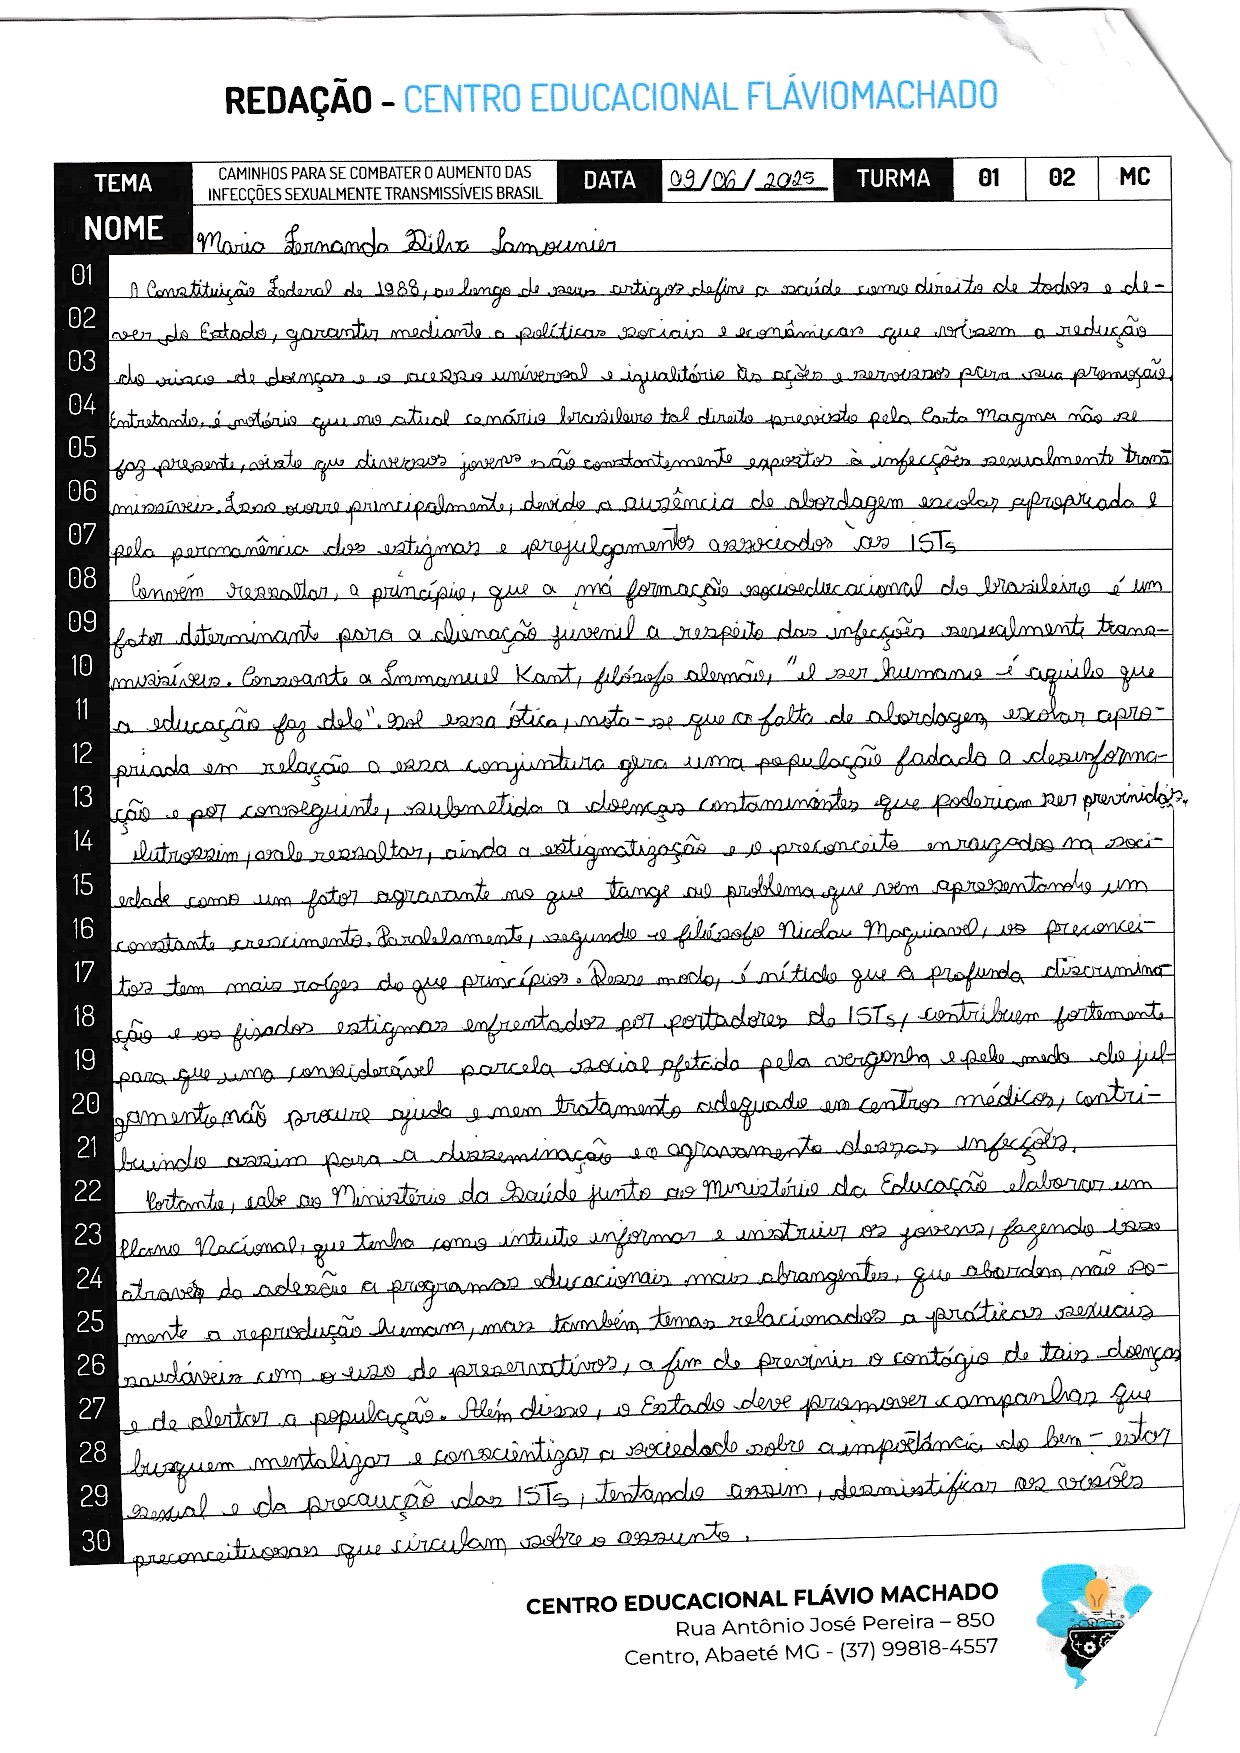 REDAÇÃO - CENTRO EDUCACIONAL FLÁVIOMACHADO
TEMA
CAMINHOS PARA SE COMBATER O AUMENTO DAS
INFECÇÕES SEXUALMENTE TRANSMISSÍVEIS BRASIL
DATA 09/06/2025 TURMA 01 02 MC
NOME Maria Fernanda Dilva Lamounier
01 A Constituição Federal de 1988, ao longo de seus artigos define a saúde como direito de todos e de-
02 ver do Estado, garantir mediante a políticas sociais e econômicas que visem a redução
03 do risco de doenças e o acesso universal e igualitário às ações e servissos para sua promoção.
04 Entretanto, é notório que no atual cenário brasileiro tal direito previsto pela Carta Magma não se
05 faz presente, visto que diversos jovens são constantemente expostos à infecções sexualmente trans
06 missíveis. Isso ocorre principalmente, devido a ausência de abordagem escolar apropriada e
07 pela permanência dos estigmas e prejulgamentos associados às ISTs
08 Convém ressaltar, a princípio, que a má formação socioeducacional do brasileiro é um
09 fator determinante para a alienação juvenil a respeito das infecções sexualmente trans-
10 missíveis. Consoante a Immanuel Kant, filósofo alemão, "el ser humano é aquilo que
11 a educação faz dele". Sob essa ótica, nota-se que a falta de abordagem escolar apro-
12 priada em relação a essa conjuntura gera uma população fadada a desinforma-
13 ção e por conseguinte, submetida a doenças contaminantes que poderiam ser previnidas.
14 Outrossim, vale ressaltar, ainda a estigmatização e o preconceito enraizados na soci-
15 edade como um fator agravante no que tange ao problema que vem apresentando um
16 constante crescimento. Paralelamente, segundo o filósofo Nicolau Maquiavel, os preconcei-
17 tos tem mais raízes do que princípios. Desse modo, é nítido que a profunda discrimina
18 ção e os fixados estigmas enfrentados por portadores de ISTs, contribuem fortemente
19 para que uma considerável parcela social afetada pela vergonha e pelo medo do jul-
20 gamento não procure ajuda e nem tratamento adequado em centros médicos, contri-
21 buindo assim para a disseminação e o agravamento dessas infecções.
22 Portanto, cabe ao Ministério da Saúde junto ao Ministério da Educação elaborar um
23 Plano Nacional, que tenha como intuito informar e instruir os jovens, fazendo isso
24 através da adesão a programas educacionais mais abrangentes, que abordem não so-
25 mente a reprodução humana, mas também temas relacionados a práticas sexuais
26 saudáveis com o uso de preservativos, a fim de previnir o contágio de tais doenças
27 e de alertar a população. Além disso, o Estado deve promover campanhas que
28 busquem mentalizar e conscientizar a sociedade sobre a importância do bem-estar
29 sexual e da precaução das ISTs, tentando assim, desmistificar as visões
30 preconceituosas que circulam sobre o assunto.
CENTRO EDUCACIONAL FLÁVIO MACHADO
Rua Antônio José Pereira – 850
Centro, Abaeté MG - (37) 99818-4557